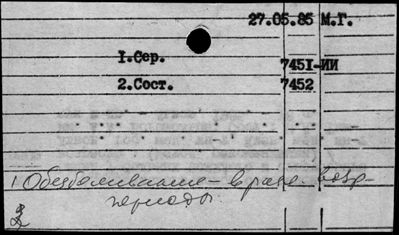 27.05.85 М.Г.
1.Сер. 7451-ИИ
2.Сост. 7452
1. Обезболивание – в разл. возр-
периоды.